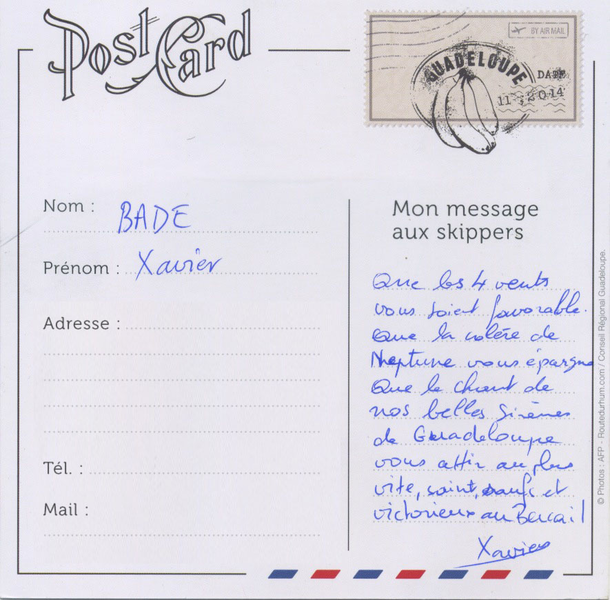 Post Card
BY AIR MAIL
GUADELOUPE
DATE
11 2014
Nom : BADE
Prénom : Xavier
Adresse :
Tél. :
Mail :
Mon message
aux skippers
Que les 4 vents
vous soient favorable.
Que la colère de
Neptune vous épargne
Que le chant de
nos belles Sirènes
de Guadeloupe
vous attir au plus
vite, saint, saufs et
victorieux au Bercail
Xavier
© Photos : AFP - Routedurhum.com / Conseil Régional Guadeloupe.